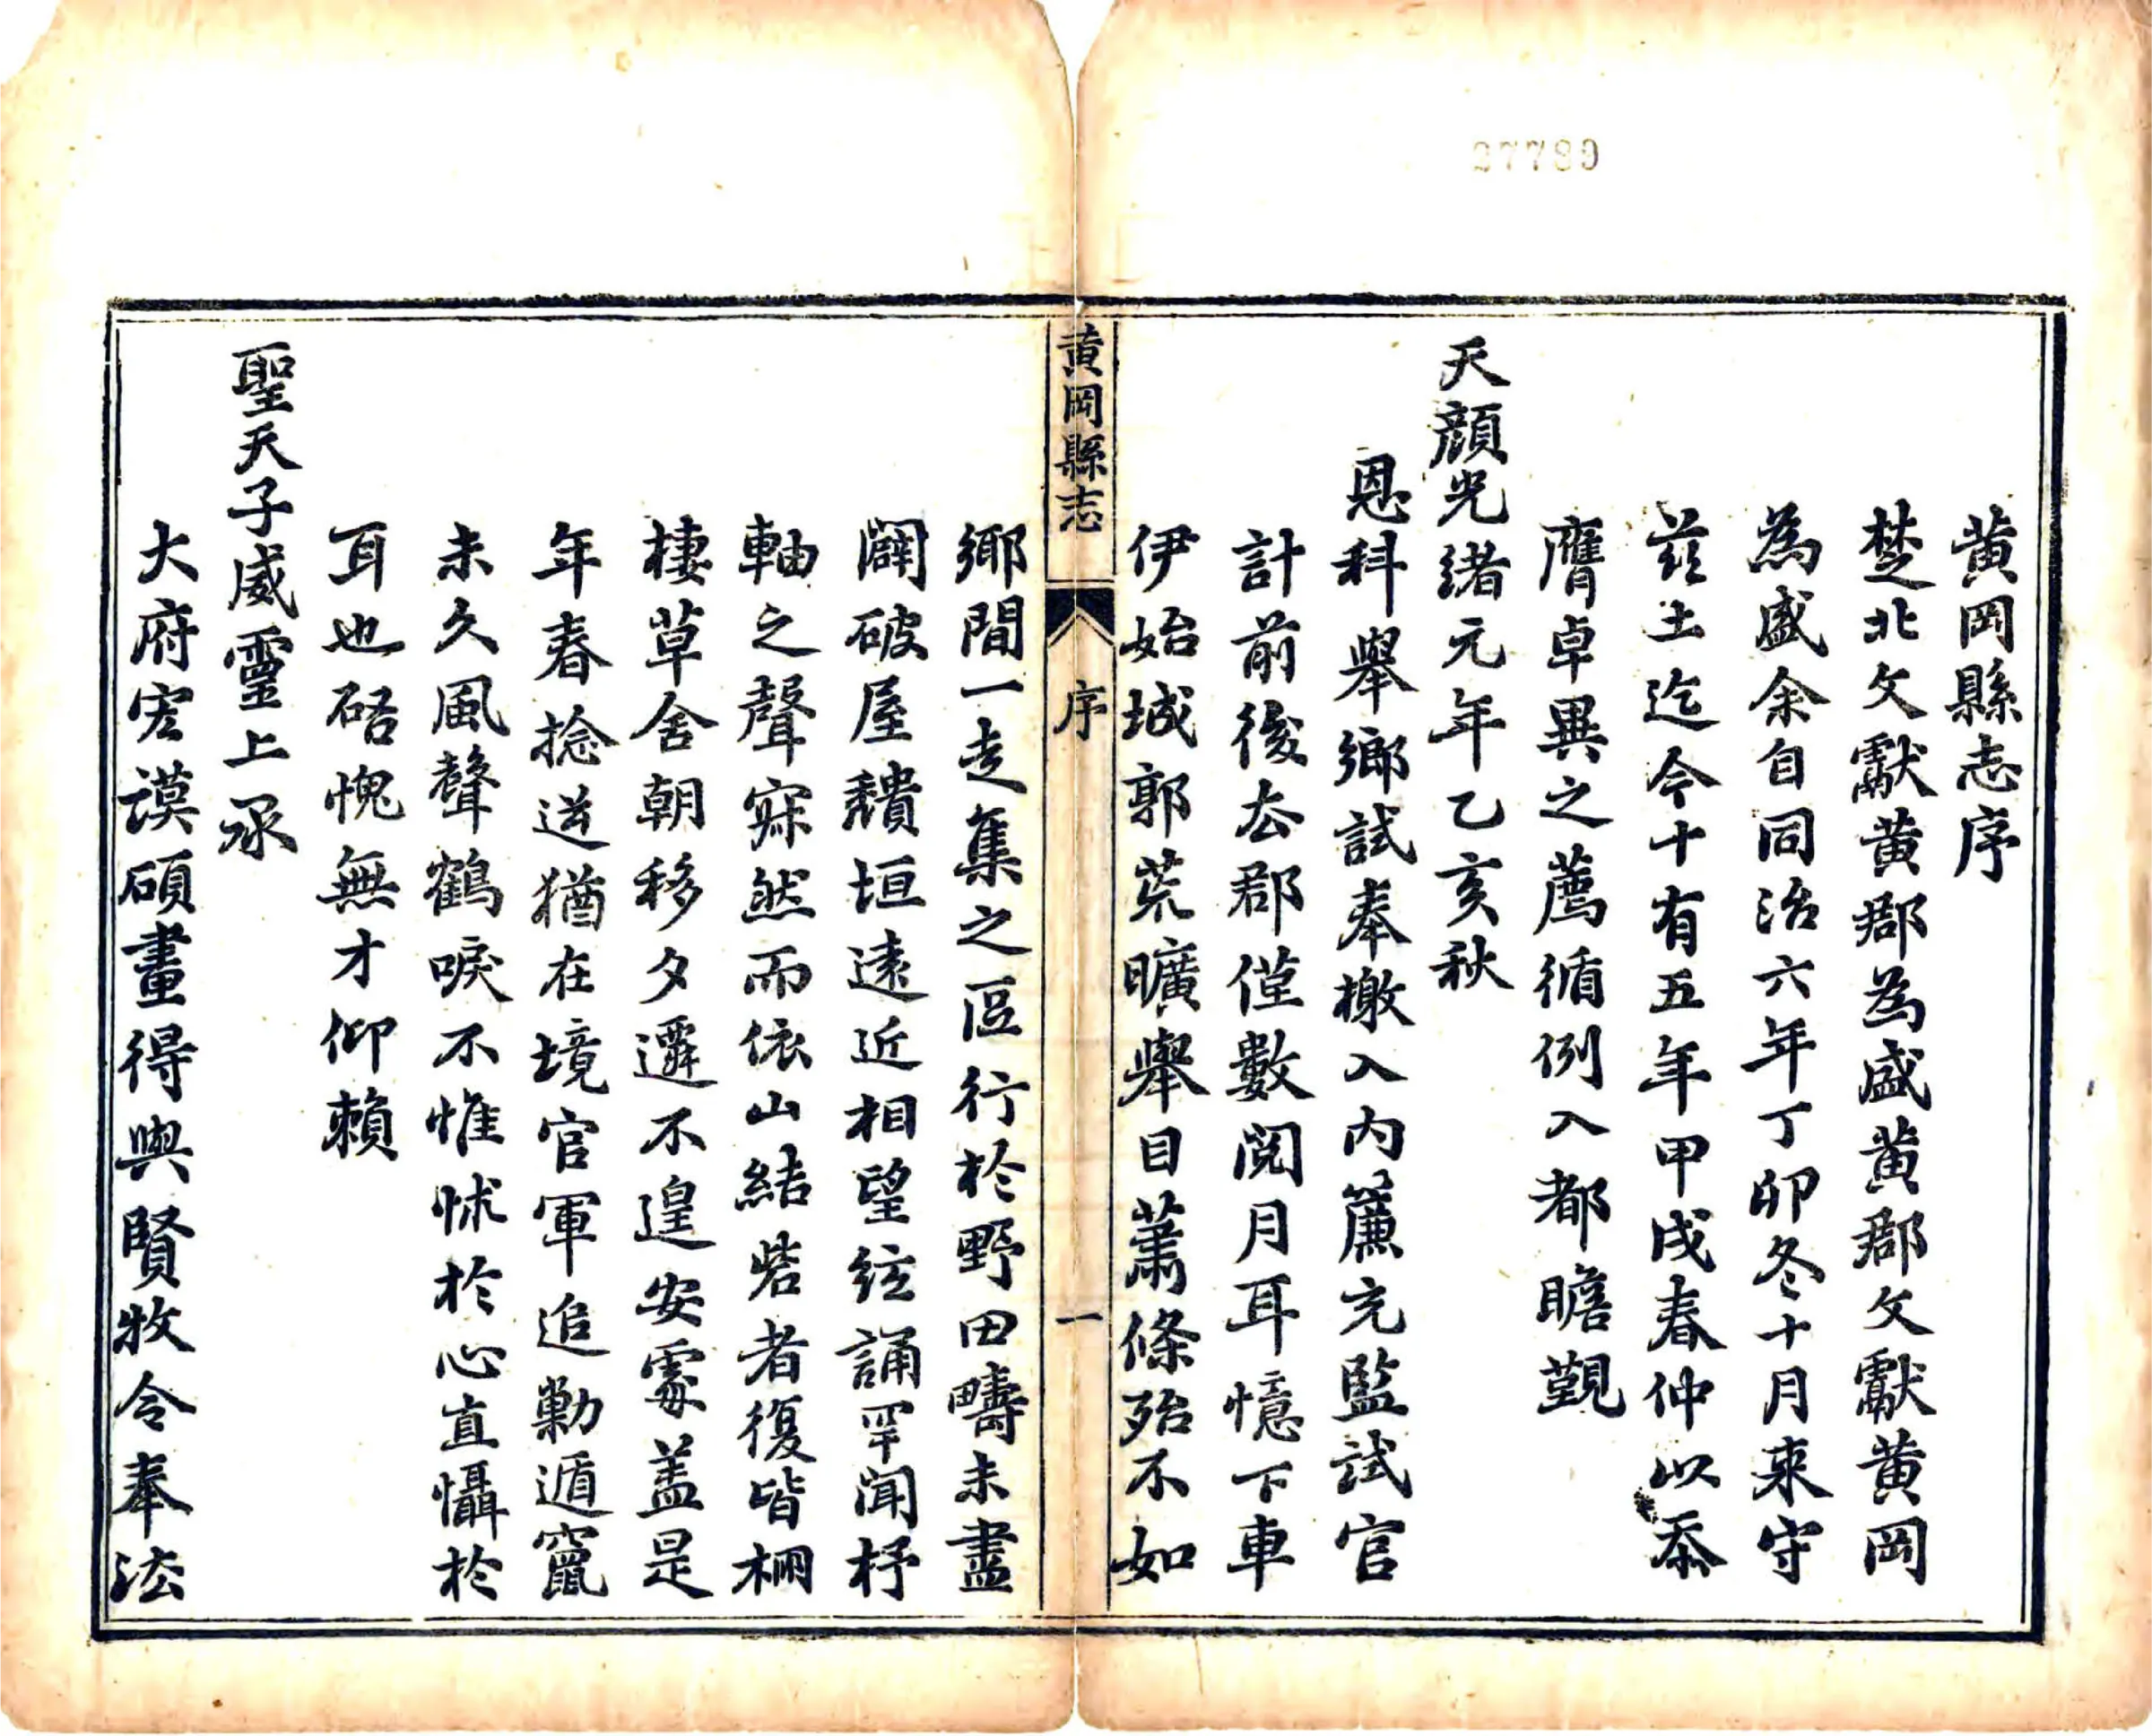 27789
黃岡縣志序
楚北文獻黃郡為盛黃郡文獻黃岡
為盛余自同治六年丁卯冬十月來守
茲土迄今十有五年甲戌春仲以忝
膺卓異之薦循例入都瞻覲
天顏光緒元年乙亥秋
恩科舉鄉試奉檄入内簾充監試官
計前後去郡僅數閱月耳憶下車
伊始城郭荒曠舉目蕭條殆不如
黃岡縣志
序
一
鄉間一走集之區行於野田疇未盡
闢破屋穨垣遠近相望絃誦罕聞杼
軸之聲寂然而依山結砦者復皆柵
棲草舍朝移夕遷不遑安處盖是
年春捻逆猶在境官軍追勦遁竄
未久風聲鶴唳不惟怵於心直懾於
耳也硞愧無才仰賴
聖天子威靈上承
大府宏謨碩畫得與賢牧令奉法